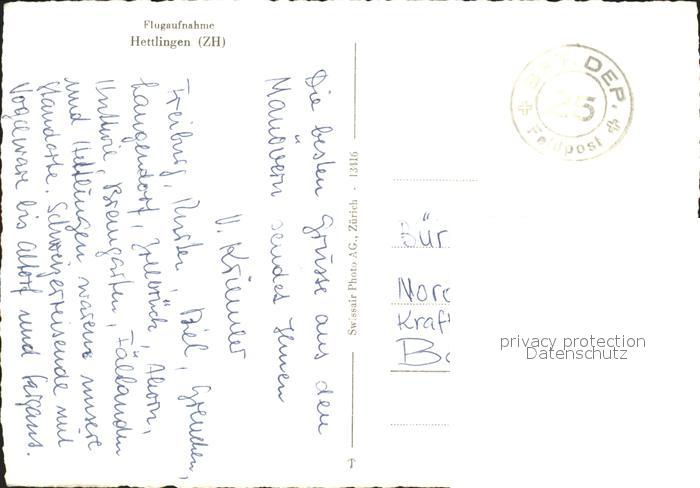 Flugaufnahme
Hettlingen (ZH)
Die besten Grüsse aus den
Manövern sendet Ihnen
V. Krummer
Freiburg, Biel, Grenchen,
Langendorf, Zollbrück, Ahorn,
Huttwil, Bremgarten, Fällanden
und Hettlingen waren unsere
Standorte. Schweizerreisende mit
Vogelware bis Altdorf und Sargans.
Swissair Photo AG., Zürich · 13416
DEP.
25
Feldpost
Bür
Nord
Kraft
Ba
privacy protection
Datenschutz